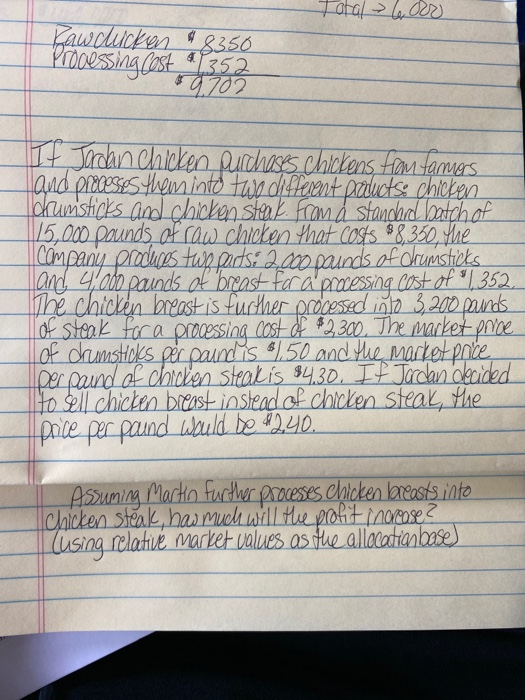 Total → 6,000
Raw chicken $8350
Processing Cost $1352
$9,702
If Jordan Chicken purchases chickens from farmers
and processes them into two different products: chicken
drumsticks and chicken steak. From a standard batch of
15,000 pounds of raw chicken that costs $8,350, the
company produces two parts: 2,000 pounds of drumsticks
and 4,000 pounds of breast for a processing cost of $1,352.
The chicken breast is further processed into 3,200 pounds
of steak for a processing cost of $2300. The market price
of drumsticks per pound is $1.50 and the market price
per pound of chicken steak is $4.30. If Jordan decided
to sell chicken breast instead of chicken steak, the
price per pound would be $2.40.
Assuming Martin further processes chicken breasts into
chicken steak, how much will the profit increase?
(using relative market values as the allocation base)